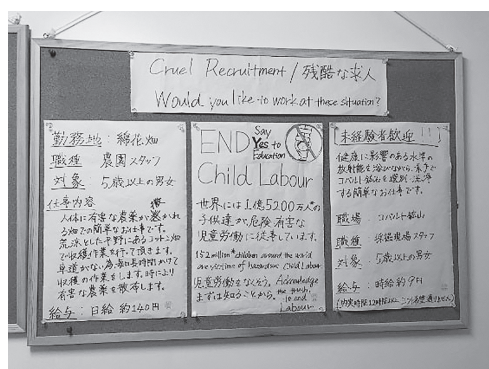 Cruel Recruitment / 残酷な求人
Would you like to work at these situation?
勤務地 : 綿花畑
職種 農園スタッフ
対象 5歳以上の男女
仕事内容
人体に有害な農薬が撒かれる
畑での簡単なお仕事です。
荒涼とした平野にあるコットン畑
で収穫作業を行って頂きます。
収穫の作業をします。時により
有害な農薬を散布します。
給与 : 日給 約140円
END
Say
Yes to
Education
Child Labour
世界には1億5200万人の
子供達が危険・有害な
児童労働に従事しています。
152 million children around the world
are victims of hazardous Child Labour
児童労働をなくそう。
まずは知ることから。
Acknowledge
the truth,
to end
Labour
未経験者歓迎!!!
健康に影響のある水準の
放射能を浴びながら、素手で
コバルト鉱石を選別、洗浄
する簡単なお仕事です。
職場 コバルト鉱山
職種 採掘現場スタッフ
対象 5歳以上の男女
給与 : 時給 約9円